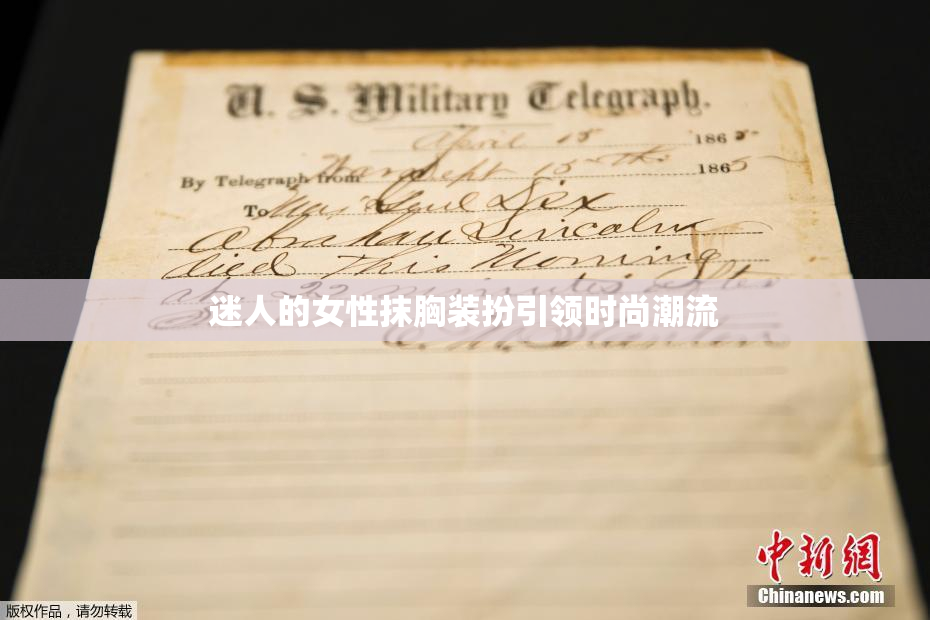 U. S. Military Telegraph.
April 15 1865
By Telegraph from War Dept 15th 1865
To Maj Genl Dix
Abraham Lincoln
died This Morning
at 22 minutes after
迷人的女性抹胸装扮引领时尚潮流
E. M. Stanton
中新网
Chinanews.com
版权作品，请勿转载